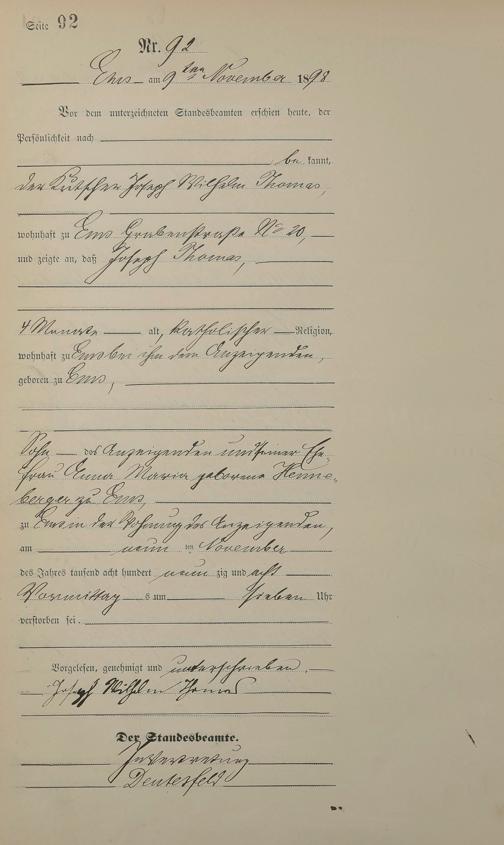 Seite 92
Nr. 92
Ems am 9ten November 1898
Vor dem unterzeichneten Standesbeamten erschien heute, der
Persönlichkeit nach
be kannt,
der Kutscher Joseph Wilhelm Thomas,
wohnhaft zu Ems Grabenstraße No 20,
und zeigte an, daß Joseph Thomas,
4 Monate alt, katholischer Religion,
wohnhaft zu Ems bei ihm dem Anzeigenden,
geboren zu Ems,
Sohn des Anzeigenden und seiner Ehe-
frau Anna Maria geborene Henne-
berger zu Ems,
zu Ems in der Wohnung des Anzeigenden,
am neun ten November
des Jahres tausend acht hundert neun zig und acht
Vormittag s um sieben Uhr
verstorben sei.
Vorgelesen, genehmigt und unterschrieben.
Joseph Wilhelm Thomas
Der Standesbeamte.
In Vertretung